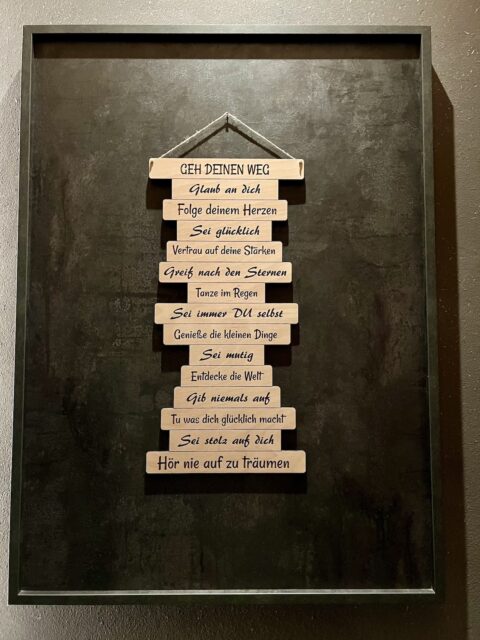 GEH DEINEN WEG
Glaub an dich
Folge deinem Herzen
Sei glücklich
Vertrau auf deine Stärken
Greif nach den Sternen
Tanze im Regen
Sei immer DU selbst
Genieße die kleinen Dinge
Sei mutig
Entdecke die Welt
Gib niemals auf
Tu was dich glücklich macht
Sei stolz auf dich
Hör nie auf zu träumen